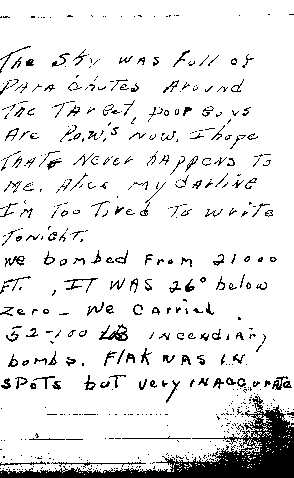 The sky was full of
parachutes around
the target, poor guys
are P.O.W.'s now. I hope
that never happens to
me. Alice my darling
I'm too tired to write
tonight.
We bombed from 21000
ft., it was 26° below
zero - We carried
52-100 LB incendiary
bombs. Flak was in
spots but very inaccurate